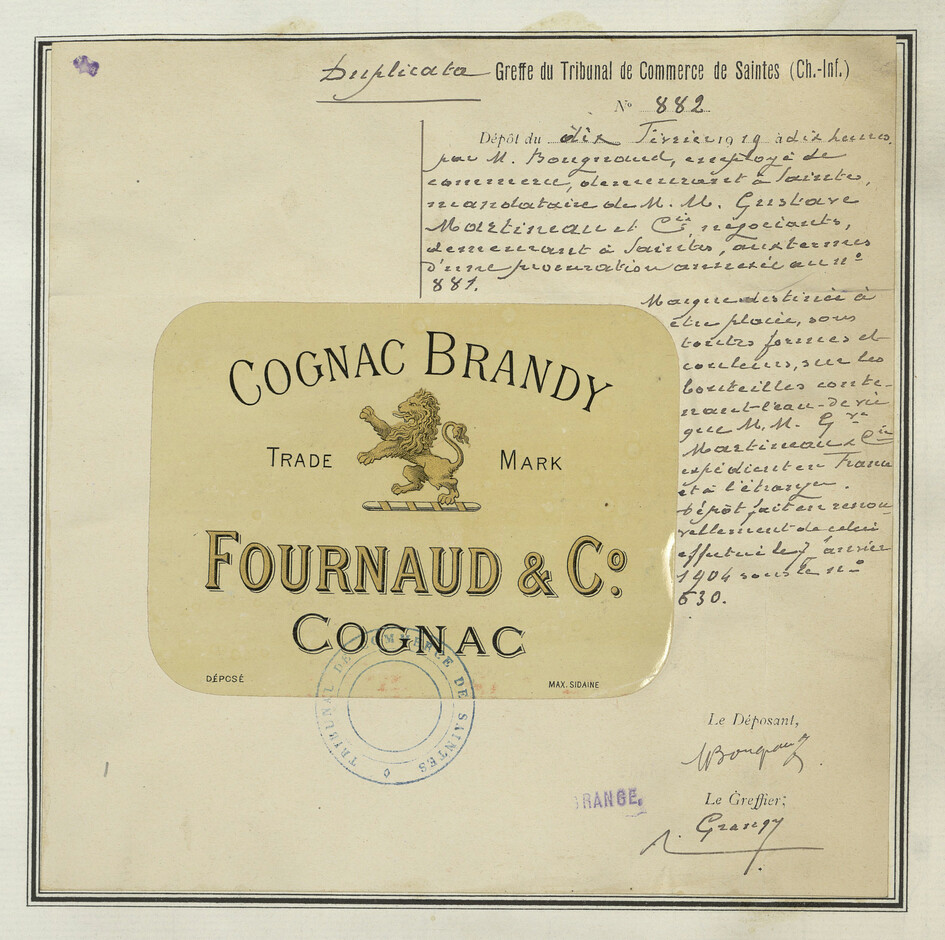 Duplicata Greffe du Tribunal de Commerce de Saintes (Ch.-Inf.)
N° 882
Dépôt du dix Février 1919 à dix heures
par M. Bougnaud, employé de
commerce, demeurant à Saintes,
mandataire de M. M. Gustave
Martineau et Cie, négociants,
demeurant à Saintes, aux termes
d'une procuration annexée au n°
881.
Marque destinée à
être placée, sous
toutes formes et
couleurs, sur les
bouteilles conte-
nant l'eau-de-vie
que M. M. Gve
Martineau & Cie
expédient en France
et à l'étranger.
Dépôt fait en renou-
vellement de celui
effectué le 7 Janvier
1904 sous le n°
630.
COGNAC BRANDY
TRADE MARK
FOURNAUD & Co
COGNAC
DÉPOSÉ
MAX. SIDAINE
TRIBUNAL DE COMMERCE DE SAINTES
Le Déposant,
Bougnaud
Le Greffier;
RANGE.
Grange